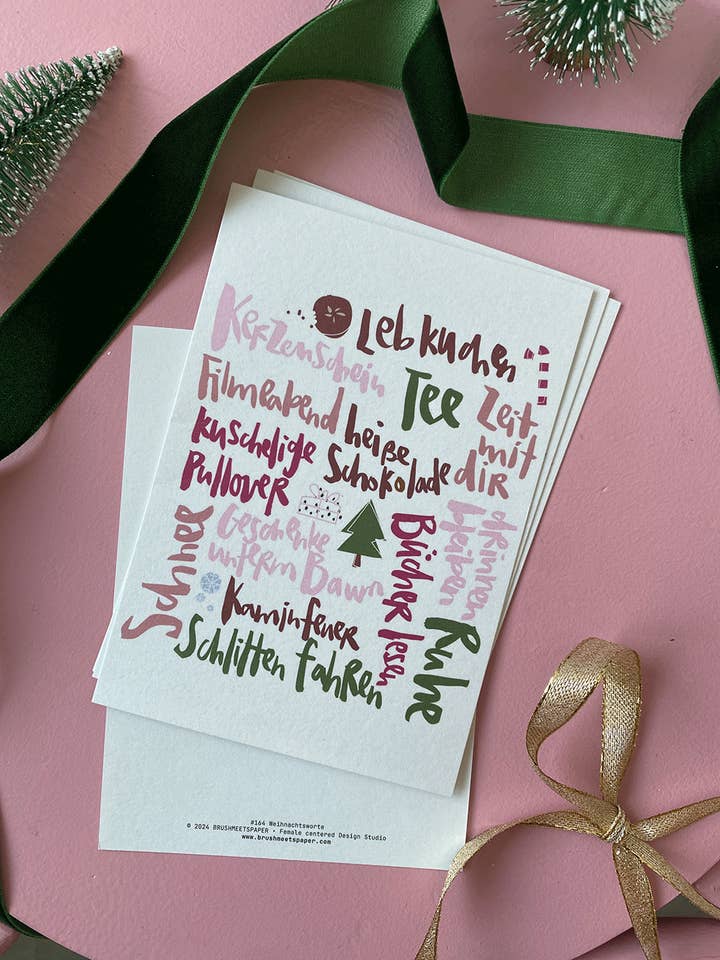 Kerzenschein
Lebkuchen
Filmeabend
Tee
Zeit
mit
dir
kuschelige
Pullover
heiße
Schokolade
Geschenke
unterm Baum
Bücher lesen
drinnen
bleiben
Schnee
Kaminfeuer
Schlitten fahren
Ruhe
#164 Weihnachtsworte
© 2024 BRUSHMEETSPAPER • Female centered Design Studio
www.brushmeetspaper.com